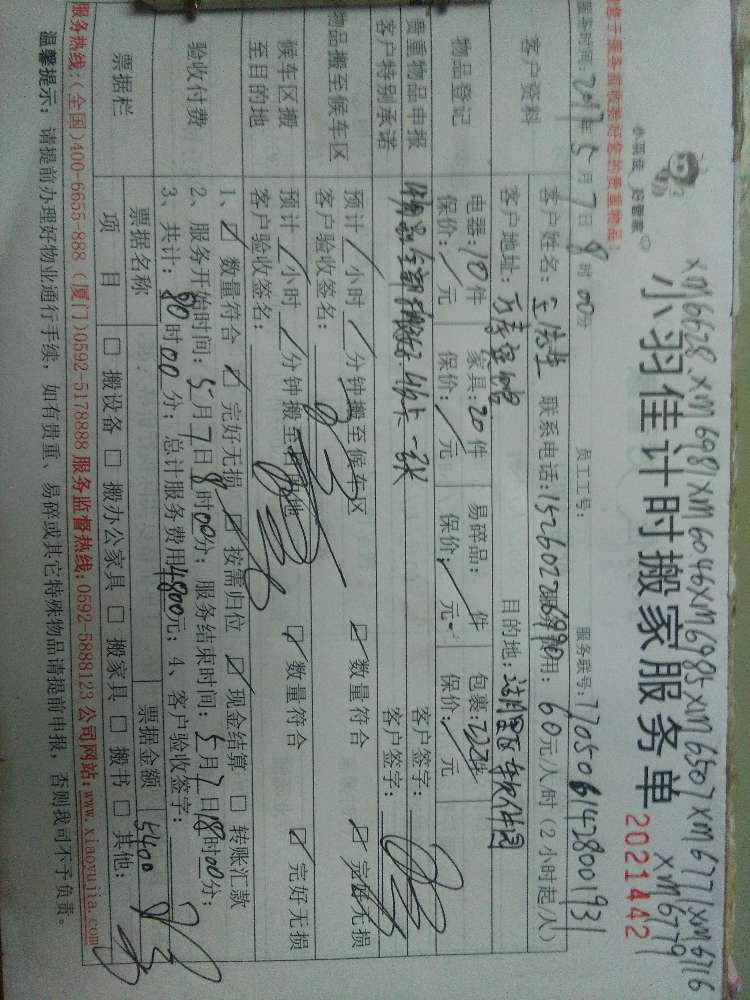 xm6628.xm6981xm6046xm6985xm6507xm6771xm6716
xm6779
小羽佳 好管家
小羽佳计时搬家服务单
2021442
服务时间:2017年5月7日8时00分 员工工号: 服务联号:1705061428001931
客户资料
客户姓名: 联系电话: 60元/人/时(2小时起/人)
客户地址: 目的地:
物品登记
电器:10件 家具:20件 易碎品: 件 包裹: 件
保价: 元 保价: 元 保价: 元 保价: 元
贵重物品申报
客户特别承诺
客户签字:
客户签字:
物品搬至候车区
预计 小时 分钟搬至候车区 数量符合 完好无损
客户验收签名:
候车区搬
至目的地
预计 小时 分钟搬至目的地 数量符合 完好无损
客户验收签名:
验收付费
1、 数量符合 完好无损 按需归位 现金结算 转账汇款
2、服务开始时间:5月7日8时00分; 服务结束时间:5月7日18时00分;
3、共计:80时00分; 总计服务费用4800元; 4、客户验收签字:
票据栏
票据名称 票据金额 5400
项 目 搬设备 搬办公家具 搬家具 搬书 其他:
服务热线:(全国)400-6655-888 (厦门)0592-5178888 服务监督热线:0592-5888123 公司网站:www.xiaoyujia.com
温馨提示: 请提前办理好物业通行手续, 如有贵重、易碎或其它特殊物品请提前申报, 否则我司不予负责。